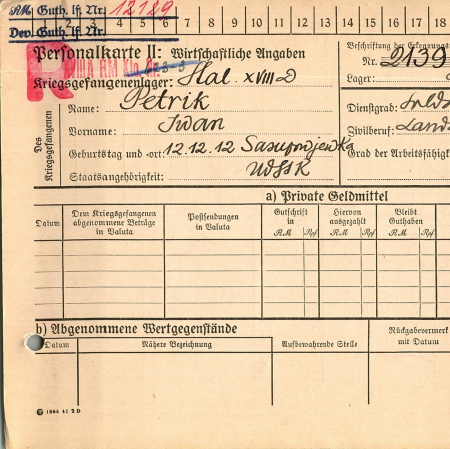 RM Guth. lf. Nr. 12129
1 2 3 4 5 6 7 8 9 10 11 12 13 14 15 16 17 18
Dev. Guth. lf. Nr.
Personalkarte II: Wirtschaftliche Angaben
Beschriftung der Erkennungs
Nr. 2139
Kriegsgefangenenlager: Stal. XVIII D
Lager:
Des Kriegsgefangenen
Name: Petrik
Vorname: Iwan
Geburtstag und -ort: 12.12.12
Staatsangehörigkeit: UdSSR
Dienstgrad: Sold
Zivilberuf: Land
Grad der Arbeitsfähigk
a) Private Geldmittel
Datum
Dem Kriegsgefangenen abgenommene Beträge in Valuta
Postsendungen in Valuta
Gutschrift in
RM Rpf
Hiervon ausgezahlt
RM Rpf
Bleibt Guthaben
RM Rpf
b) Abgenommene Wertgegenstände
Datum
Nähere Bezeichnung
Aufbewahrende Stelle
Rückgabevermerk mit Datum
1865 41 2 D